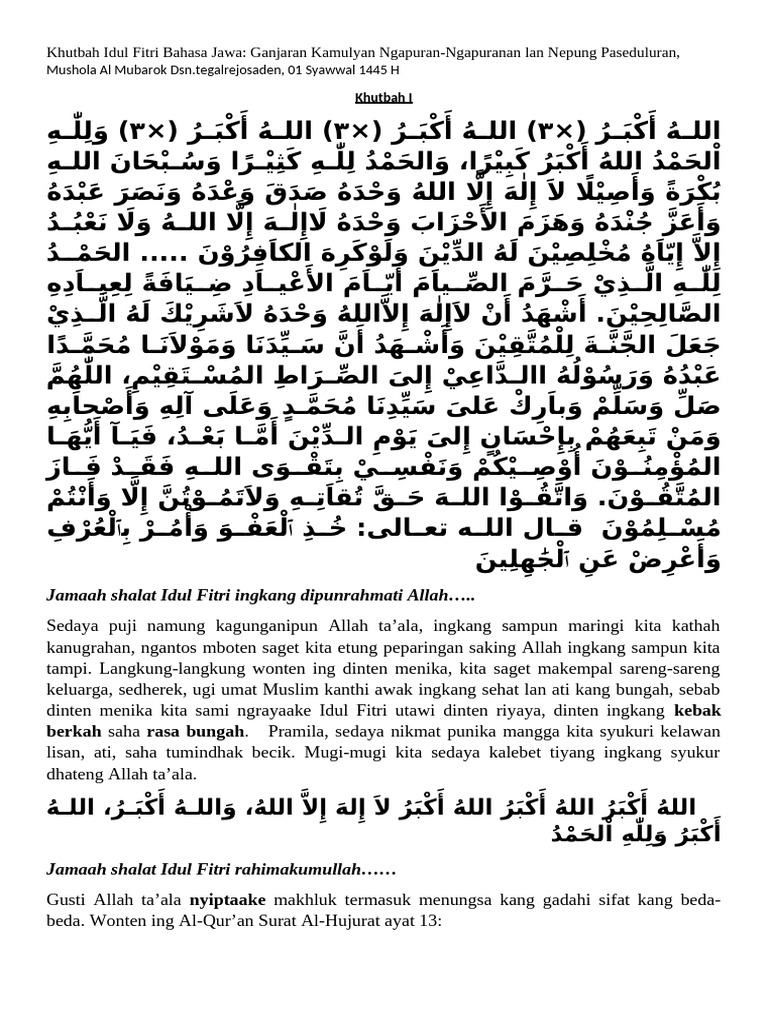 Khutbah Idul Fitri Bahasa Jawa: Ganjaran Kamulyan Ngapuran-Ngapuranan lan Nepung Paseduluran,
Mushola Al Mubarok Dsn.tegalrejosaden, 01 Syawwal 1445 H
Khutbah I
اللهُ أَكْبَرُ (×٣) اللهُ أَكْبَرُ (×٣) اللهُ أَكْبَرُ (×٣) وَلِلّٰهِ
اْلحَمْدُ اللهُ أَكْبَرُ كَبِيْرًا، وَالحَمْدُ لِلّٰهِ كَثِيْرًا وَسُبْحَانَ اللهِ
بُكْرَةً وَأَصِيْلًا لاَ إِلٰهَ إِلَّا اللهُ وَحْدَهُ صَدَقَ وَعْدَهُ وَنَصَرَ عَبْدَهُ
وَأَعَزَّ جُنْدَهُ وَهَزَمَ الأَحْزَابَ وَحْدَهُ لَاإِلٰهَ إِلَّا اللهُ وَلَا نَعْبُدُ
إِلاَّ إِيّاَهُ مُخْلِصِيْنَ لَهُ الدِّيْنَ وَلَوْكَرِهَ الكاَفِرُوْنَ ..... الحَمْدُ
لِلّٰهِ الَّذِيْ حَرَّمَ الصِّياَمَ أَيّاَمَ الأَعْياَدِ ضِيَافَةً لِعِباَدِهِ
الصَّالِحِيْنَ. أَشْهَدُ أَنْ لاَإِلٰهَ إِلاَّاللهُ وَحْدَهُ لاَشَرِيْكَ لَهُ الَّذِيْ
جَعَلَ الجَّنَّةَ لِلْمُتَّقِيْنَ وَأَشْهَدُ أَنَّ سَيِّدَنَا وَمَوْلاَنَا مُحَمَّدًا
عَبْدُهُ وَرَسُوْلُهُ االدَّاعِيْ إِلىَ الصِّرَاطِ المُسْتَقِيْمِ، اللّٰهُمَّ
صَلِّ وَسَلِّمْ وَباَرِكْ عَلىَ سَيِّدِنَا مُحَمَّدٍ وَعَلَى آلِهِ وَأَصْحاَبِهِ
وَمَنْ تَبِعَهُمْ بِإِحْسَانٍ إِلىَ يَوْمِ الدِّيْنَ أَمَّا بَعْدُ، فَيَآ أَيُّهَا
المُؤْمِنُوْنَ أُوْصِيْكُمْ وَنَفْسِيْ بِتَقْوَى اللهِ فَقَدْ فَازَ
المُتَّقُوْنَ. وَاتَّقُوْا اللهَ حَقَّ تُقاَتِهِ وَلاَتَمُوْتُنَّ إِلَّا وَأَنْتُمْ
مُسْلِمُوْنَ قال الله تعالى: خُذِ ٱلْعَفْوَ وَأْمُرْ بِٱلْعُرْفِ
وَأَعْرِضْ عَنِ ٱلْجَٰهِلِينَ
Jamaah shalat Idul Fitri ingkang dipunrahmati Allah…..
Sedaya puji namung kagunganipun Allah ta’ala, ingkang sampun maringi kita kathah
kanugrahan, ngantos mboten saget kita etung peparingan saking Allah ingkang sampun kita
tampi. Langkung-langkung wonten ing dinten menika, kita saget makempal sareng-sareng
keluarga, sedherek, ugi umat Muslim kanthi awak ingkang sehat lan ati kang bungah, sebab
dinten menika kita sami ngrayaake Idul Fitri utawi dinten riyaya, dinten ingkang kebak
berkah saha rasa bungah. Pramila, sedaya nikmat punika mangga kita syukuri kelawan
lisan, ati, saha tumindhak becik. Mugi-mugi kita sedaya kalebet tiyang ingkang syukur
dhateng Allah ta’ala.
اللهُ أَكْبَرُ اللهُ أَكْبَرُ اللهُ أَكْبَرُ لاَ إِلهَ إِلاَّ اللهُ، وَاللهُ أَكْبَرُ، اللهُ
أَكْبَرُ وَلِلّٰهِ اْلحَمْدُ
Jamaah shalat Idul Fitri rahimakumullah……
Gusti Allah ta’ala nyiptaake makhluk termasuk menungsa kang gadahi sifat kang beda-
beda. Wonten ing Al-Qur’an Surat Al-Hujurat ayat 13: